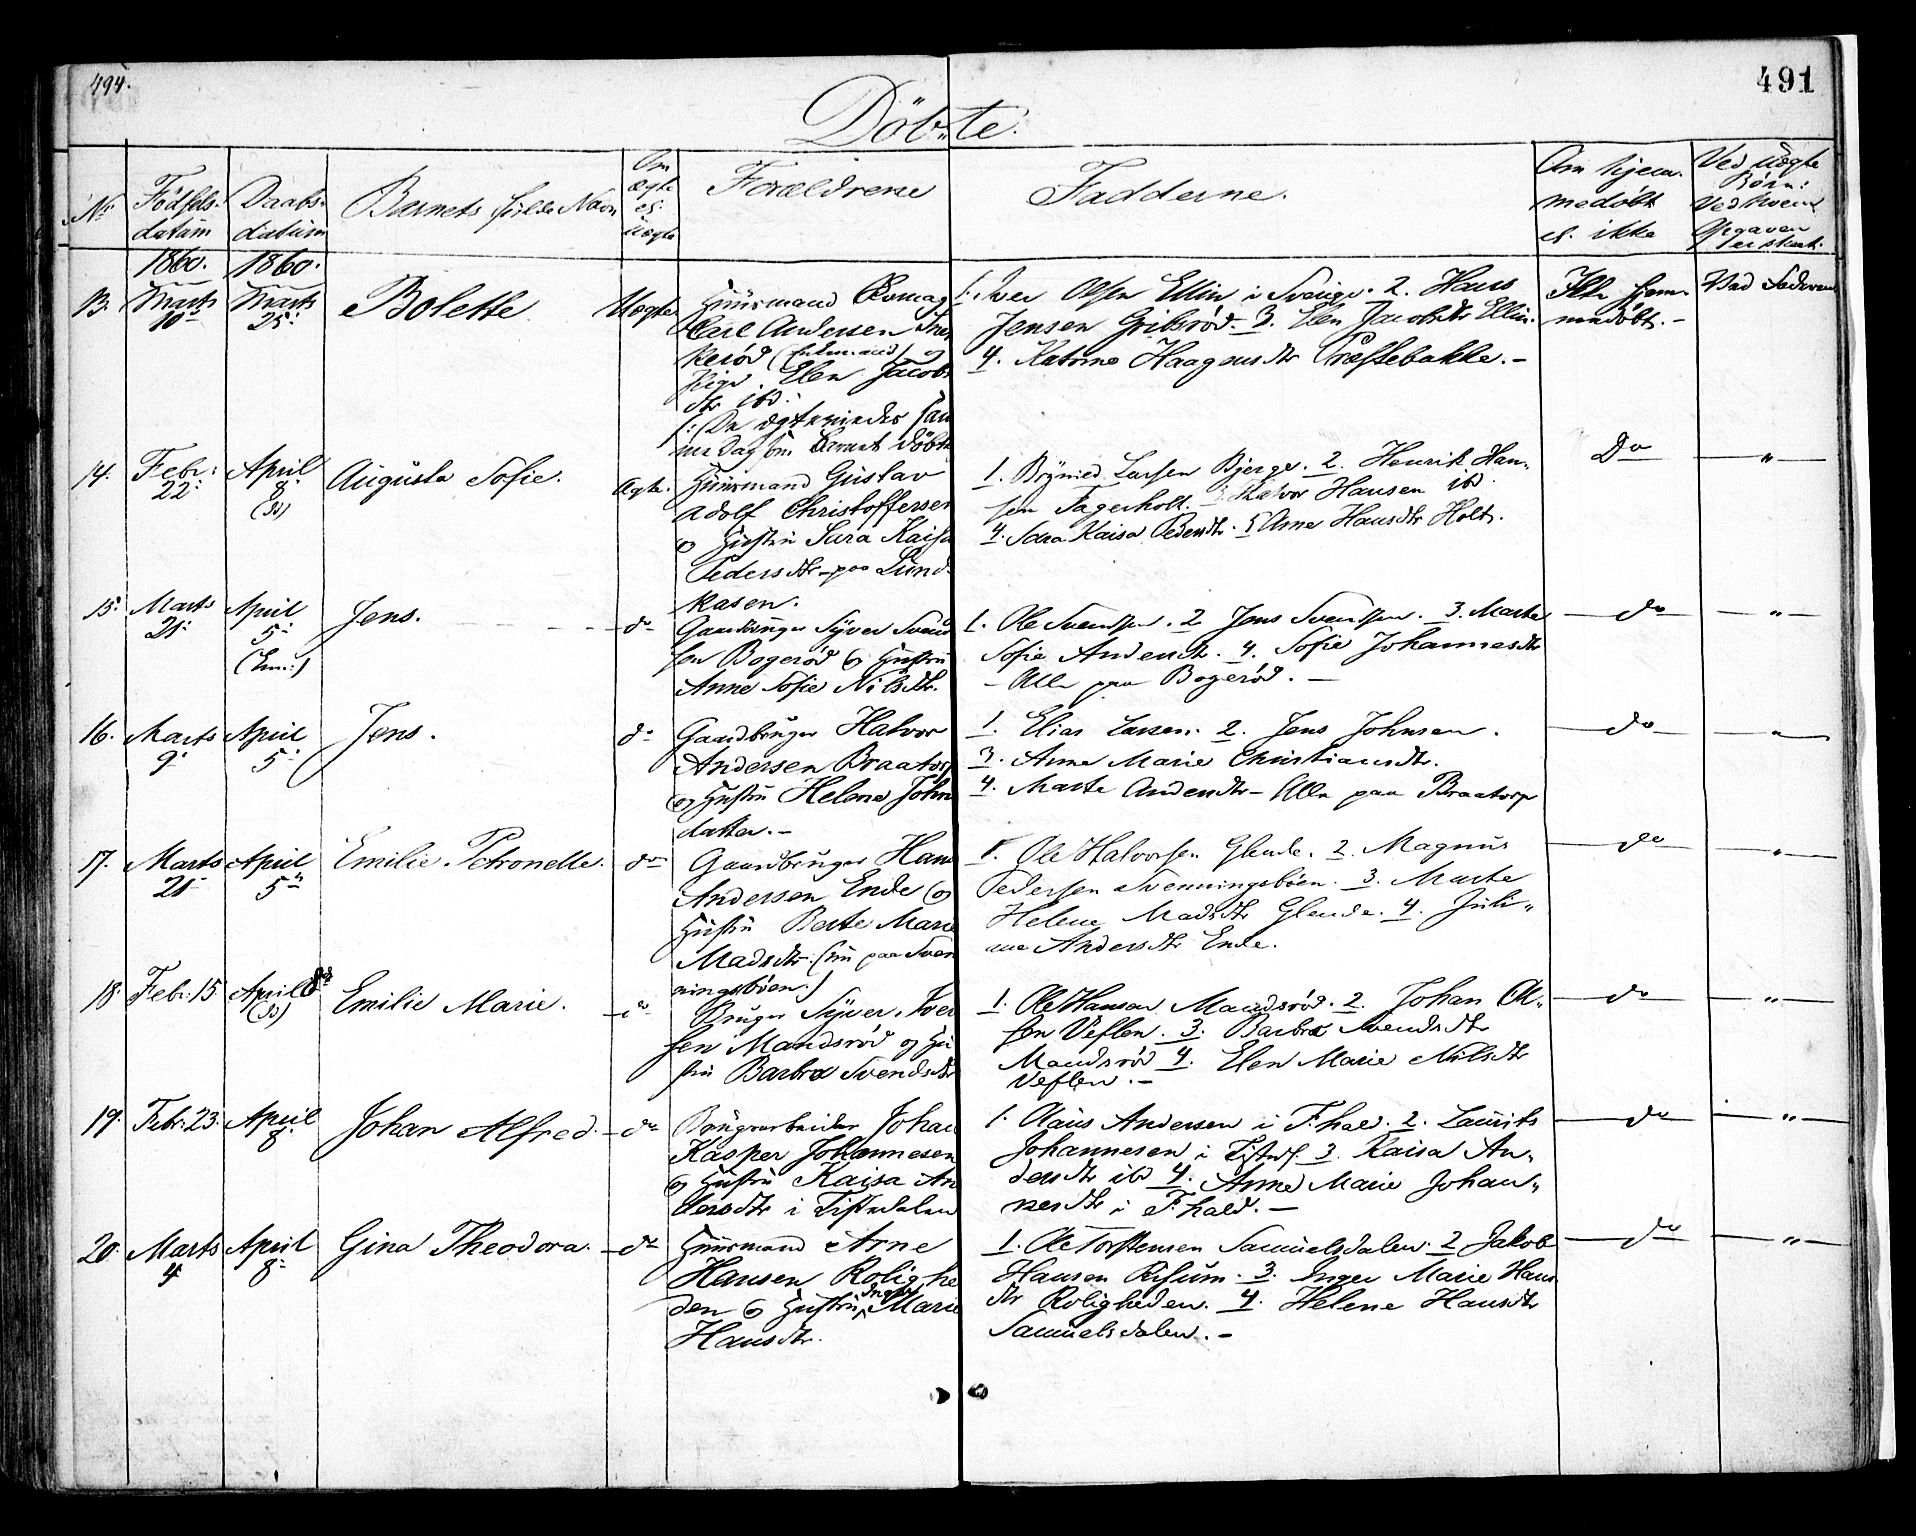 494.
491
Döbte.
No.
Födsels-
datum
Daabs-
datum
Barnets fulde Navn
Om
ægte
el.
uægte
Forældrene
Fadderne.
Om hjem-
medöbt
el. ikke
Ved Uægte
Børn:
Ved hvem
Opgaven
er skeet.
1860.
1860.
13.
Marts
10
Marts
25
Bolette.
Uægte
Huusmand
Carl Andersen
kerød og
Pige. Elen Jacobs
dtr ibd.
/: De ægteviedes sam
me Dag som Barnet döbtes
1. Iver Olsen Ellin i Sverige. 2. Hans
Jensen 3. Elen Jacobsdtr Ellin.
4. Katrine Haagensdtr Præstebakke. -
Ikke hjem-
medöbt. -
Ved Faderen
14.
Febr:
22
April
8
Augusta Sofie.
Ægte.
Huusmand Gustav
Adolf Christoffersen
og Hustru Sara Kaisa
Pedersdtr - paa Lund-
kasen.
1. Larsen Bjerge. 2. Henrik Han-
sen Fagerholt. Halvor Hansen ibd.
4. Sara Kaisa Pedersdtr. 5 Anne Hansdtr Holt.
Do
"
15.
Marts
21
April
5
Jens.
do
Gaardbruger Syver Svend
sen Bogerød og Hustru
Anne Sofie Nilsdtr.
1. Ole Svendsen. 2 Jens Svendsen. 3. Marte
Sofie Andersdtr. 4. Sofie Johannesdtr
- Alle paa Bogerød. -
do
"
16.
Marts
9
April
5
Jens.
do
Gaardbruger Halvor
Andersen Braatorp
og Hustru Helene John
datter. -
1. Elias Larsen. 2. Jens Johnsen.
3. Anne Marie Christiansdtr.
4. Marte Andersdtr - Alle paa Braatorp
do
"
17.
Marts
21
April
5
Emilie Petronelle.
do
Gaardbruger Hans
Andersen Ende og
Hustru Berte Marie
Madsdtr. (hun paa Sven
ningsbøen.)
1. Ole Halvorsen Glende. 2. Magnus
Pedersen Svenningsbøen. 3. Marte
Helene Madsdtr Glende. 4. Juli-
ane Andersdtr Ende.
do
"
18.
Febr: 15
April 8
Emilie Marie.
do
Bruger Syver Iver
sen Mandsrød og Hu
stru Barbra Svendsdtr
1. Ole Hansen Mandsrød. 2. Johan Ol-
sen Veflen. 3. Barbra Svendsdtr
Mandsrød 4. Elen Marie Nilsdtr
Veflen. -
do
"
19.
Febr: 23.
April
8
Johan Alfred.
do
Brugsarbeider Johan
Kasper Johannesen
og Hustru Kaisa An
dersdtr i Tistedalen
1. Claus Andersen i F.hald. 2. Laurits
Johannesen i Tistd. 3. Kaisa An-
dersdtr ibd 4. Anne Marie Johan-
nesdtr i F.hald. -
do
"
20.
Marts
4
April
8
Gina Theodora.
do
Huusmand Arne
Hansen Rolighe
den og Hustru Inger Marie
Hansdtr.
1. Ole Torstensen Samuelsdalen. 2 Jakob
Hansen Risum. 3. Inger Marie Hans
dtr Roligheden. 4. Helene Hansdtr
Samuelsdalen. -
do
"